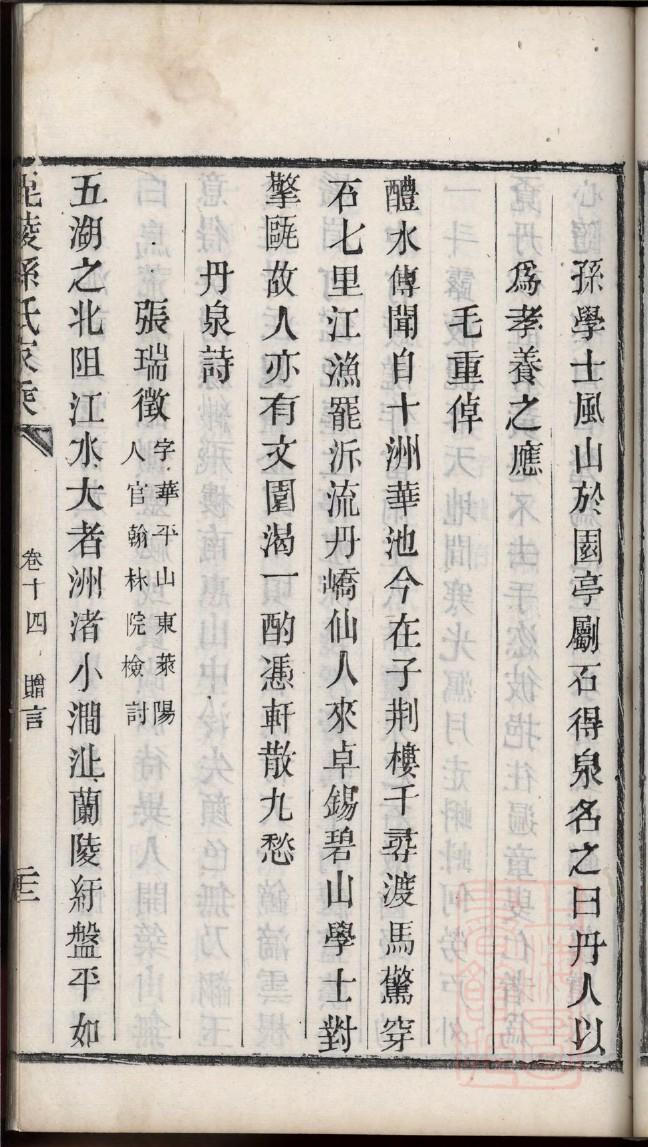 孫學士風山於園亭劚石得泉名之曰丹人以
為孝養之應
毛重倬
醴水傳聞自十洲華池今在子荆樓千尋渡馬驚穿
石七里江漁罷泝流丹嶠仙人來卓錫碧山學士對
擎甌故人亦有文園渴一酌憑軒散九愁
丹泉詩
張瑞徵字華平山東萊陽
人官翰林院檢討
五湖之北阻江水大者洲渚小澗沚蘭陵紆盤平如
毘陵孫氏家乘
卷十四 贈言